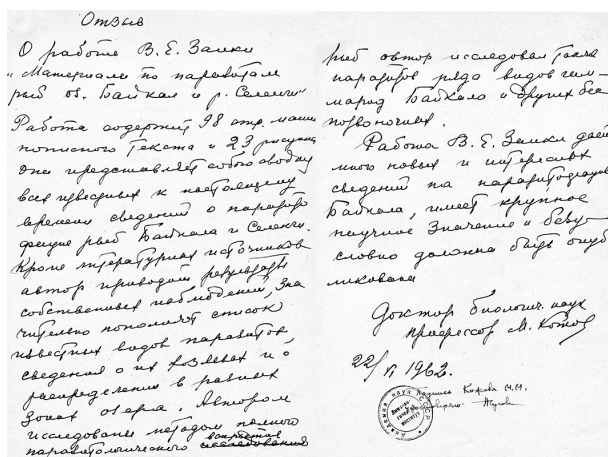 Отзыв
О работе В. Е. Заики
"Материалы по паразитам
рыб оз. Байкал и р. Селенги"
Работа содержит 98 стр. маши
нописного текста и 23 рисунка
Она представляет собою сводку
всех известных к настоящему
времени сведений о паразито
фауне рыб Байкала и Селенги.
Кроме литературных источников
автор приводит результаты
собственных наблюдений, зна
чительно пополняет список
известных видов паразитов,
сведения о их хозяевах и о
распределении в разных
зонах озера. Автором
исследованы методом полного
паразитологического вскрытия
рыб автор исследовал также
паразитов ряда видов гам-
марид Байкала и других бес
позвоночных.
Работа В. Е. Заики дает
много новых и интересных
сведений по паразитофауне
Байкала, имеет крупное
научное значение и безу-
словно должна быть опуб
ликована
Доктор биологич. наук
профессор М. Кожов
22/VI 1962.
Подпись Кожова М.М.
Академия наук СССР
институт